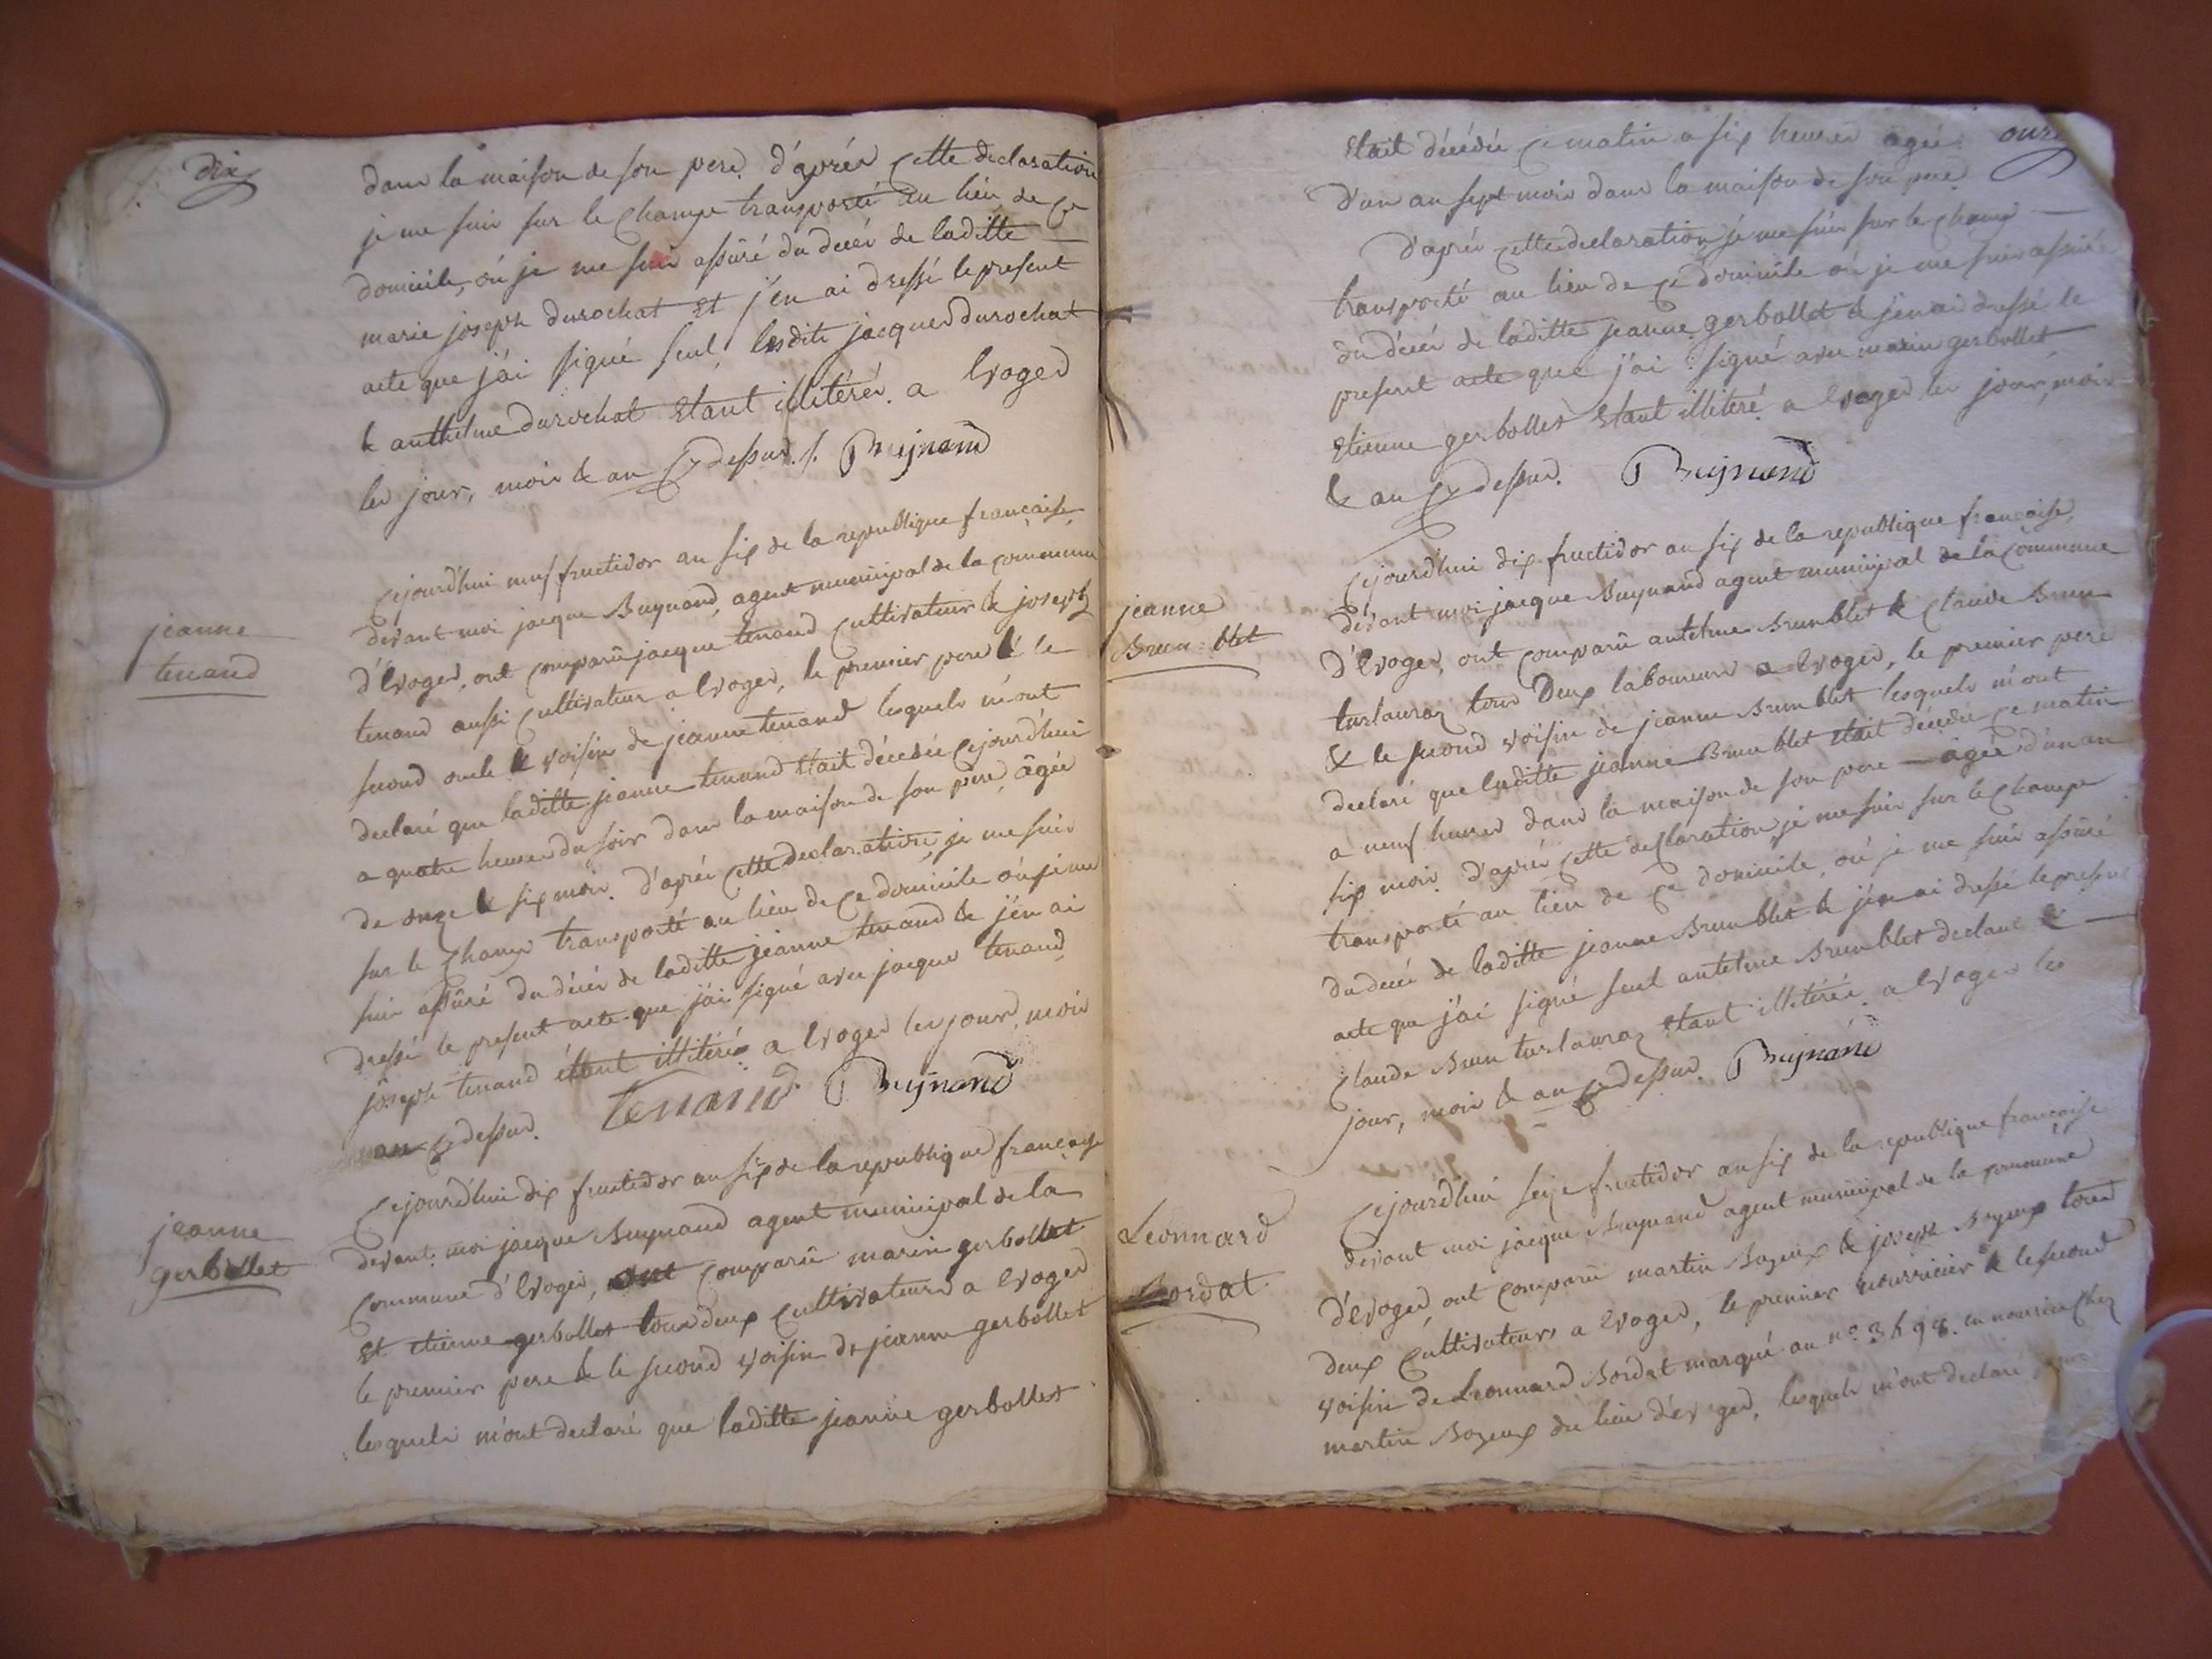 dix
dans la maison de son pere. d'après cette declaration
je me suis sur le champ transporté au lieu de ce
domicile, où je me suis assûré du décés de laditte
marie joseph durochat et j'en ai dressé le present
acte que j'ai signé seul, lesdits jacques durochat
& anthelme durochat etant illitérés. a Evoges
les jour, mois & an cy dessus. /. Buynand
jeanne
tenand
Cejourd'hui neuf fructidor an six de la republique française
devant moi jacque Buynand, agent municipal de la commune
d'Evoges, ont comparû jacque tenand cultivateur & joseph
tenand aussi cultivateur a Evoges, le premier pere & le
second oncle & voisin de jeanne tenand lesquels m'ont
declaré que laditte jeanne tenand etait décédée cejourd'hui
a quatre heures du soir dans la maison de son père, âgée
de onze & six mois. d'après cette declaration, je me suis
sur le champ transporté au lieu de ce domicile où je me
suis assûré du décés de laditte jeanne tenand & j'en ai
dressé le present acte que j'ai signé avec jacque tenand
joseph tenand étant illitéré. a Evoges les jour, mois
an cy dessus. Tenand Buynand
jeanne
gerbollet
Cejourd'hui dix fructidor an six de la republique française
devant moi jacque Buynand agent municipal de la
Commune d'Evoges, ont comparû marin gerbollet
et etienne gerbollet tous deux cultivateurs a Evoges
le premier pere & le second voisin de jeanne gerbollet
lesquels m'ont declaré que laditte jeanne gerbollet
onze
etait décédée ce matin a six heures agée
d'un an sept mois dans la maison de son pere.
d'après cette declaration je me suis sur le champ
transporté au lieu de ce domicile où je me suis assûré
du décés de laditte jeanne gerbollet & j'en ai dressé le
present acte que j'ai signé avec marin gerbollet
etienne gerbollet etant illitéré. a Evoges les jour, mois
& an cy dessus. Buynand
jeanne
Brun-blet
Cejourd'hui dix fructidor an six de la republique française,
devant moi jacque Buynand agent municipal de la commune
d'Evoges, ont comparû antelme Brunblet & Claude Brun
turlauraz tous deux laboureurs a Evoges, le premier pere
& le second voisin de jeanne Brunblet lesquels m'ont
declaré que laditte jeanne Brunblet etait décédée ce matin
a neuf heures dans la maison de son pere agée d'un an
six mois. d'après cette declaration je me suis sur le champ
transporté au lieu de ce domicile, où je me suis assûré
du décés de laditte jeanne Brunblet & j'en ai dressé le present
acte que j'ai signé seul antelme Brunblet declare &
Claude Brun turlauraz etant illitérés. a Evoges les
jour, mois & an cy dessus. Buynand
Leonnard
Bordat
Cejourd'hui seize fructidor an six de la republique française
devant moi jacque Buynand agent municipal de la commune
d'Evoges, ont comparû martin Bozeux & joseph Bozeux tous
deux cultivateurs a Evoges, le premier nourricier & le second
voisin de Leonnard Bordat marqué au n° en nourrice chez
martin Bozeux du lieu d'Evoges, lesquels m'ont declaré